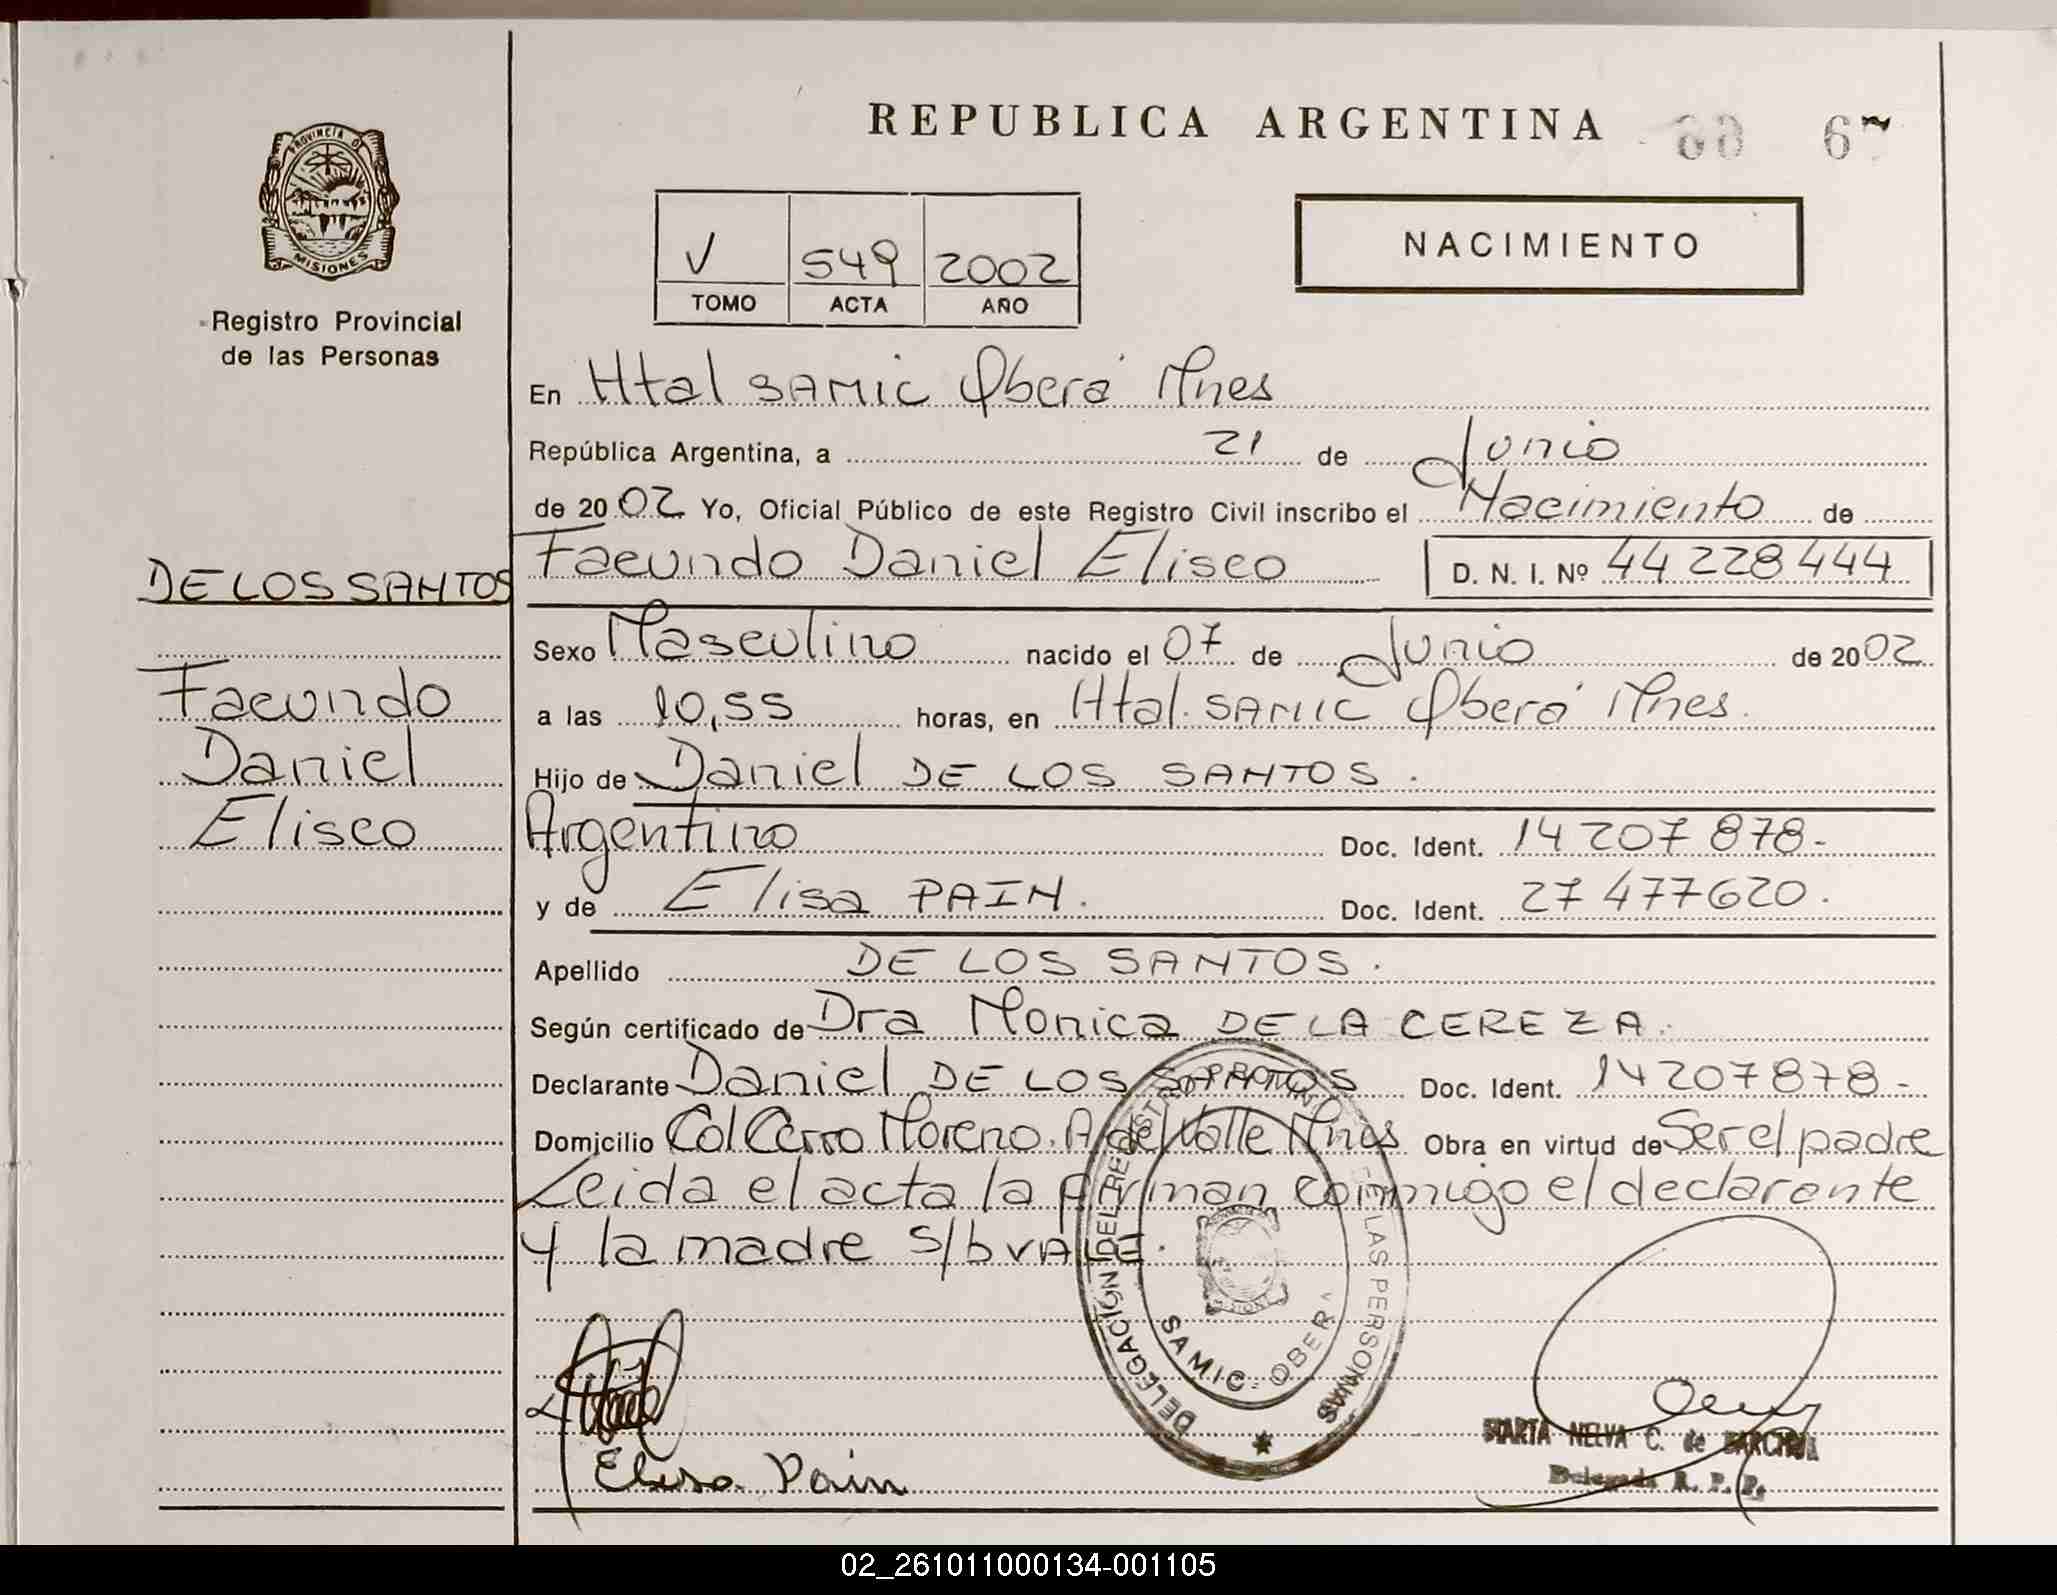 REPUBLICA ARGENTINA 66 67
PROVINCIA D
MISIONES
Registro Provincial
de las Personas
V 549 2002
TOMO ACTA AÑO
NACIMIENTO
En Htal SAMIC Oberá Mnes
República Argentina, a 21 de Junio
de 2002 Yo, Oficial Público de este Registro Civil inscribo el Nacimiento de
Facundo Daniel Eliseo D. N. I. Nº 44 228 444
DE LOS SANTOS
Facundo
Daniel
Eliseo
Sexo Masculino nacido el 07 de Junio de 2002
a las 10,55 horas, en Htal. SAMIC Oberá Mnes.
Hijo de Daniel DE LOS SANTOS.
Argentino Doc. Ident. 14 207 878-
y de Elisa PAIN. Doc. Ident. 27 477620.
Apellido DE LOS SANTOS.
Según certificado de Dra Monica DE LA CEREZA.
Declarante Daniel DE LOS SANTOS Doc. Ident. 14207878-
Domicilio Col Cerro Moreno. A del Valle Mnes Obra en virtud de Ser el padre
Leida el acta la firman conmigo el declarante
y la madre s/b VALE.
DELEGACIÓN DEL REGISTRO PROVINCIAL DE LAS PERSONAS
SAMIC - OBERA
MISIONES
Elisa Pain
MARTA NELVA C. de
Delegada R. P. P.
02_261011000134-001105